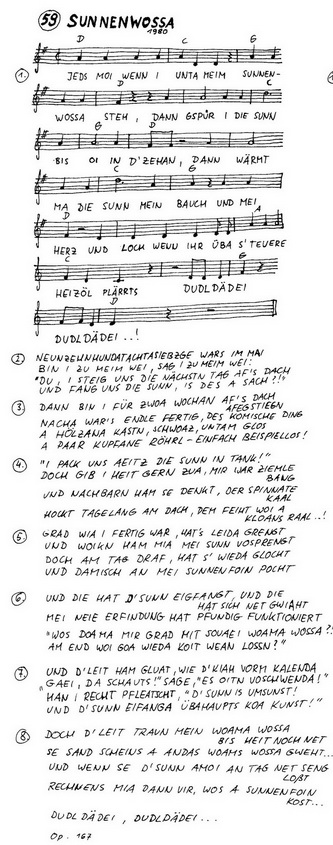 59 SUNNENWOSSA
1980
D C G
1. JEDS MOI WENN I UNTA MEIM SUNNEN-
D G
WOSSA STEH, DANN GSPÜR I DIE SUNN
G D
BIS OI IN D'ZEHAN, DANN WÄRMT
C G
MA DIE SUNN MEIN BAUCH UND MEI
D A
HERZ UND LOCH WENN IHR ÜBA S'TEUERE
C G
HEIZÖL PLÄRRTS DUDLDÄDEI
D
DUDLDÄDEI ..!
2. NEUNZEHNHUNDATACHTASIEBZGE WARS IM MAI
BIN I ZU MEIM WEI, SAG I ZU MEIM WEI:
"DU, I STEIG UNS DIE NÄCHSTN TAG AF'S DACH
UND FANG UNS DIE SUNN, IS DES A SACH?!"
3. DANN BIN I FÜR ZWOA WOCHAN AF'S DACH
AFEGSTIEGN
NACHA WAR'S ENDLE FERTIG, DES KOMISCHE DING
A HÖLZANA KASTN, SCHWOAZ, UNTAM GLOS
A PAAR KUPFANE RÖHRL - EINFACH BEISPIELLOS!
4. "I PACK UNS AEITZ DIE SUNN IN TANK!"
DOCH GIB I HEIT GERN ZUA, MIR WAR ZIEMLE
BANG
UND NACHBARN HAM SE DENKT, DER SPINNATE
KAAL
HOCKT TAGELANG AM DACH, DEM FEIHT WOI A
KLOANS RAAL..!
5. GRAD WIA I FERTIG WAR, HAT'S LEIDA GRENGT
UND WOLKN HAM MIA MEI SUNN VOSPRENGT
DOCH AM TAG DRAF, HAT S' WIEDA GLOCHT
UND DAMISCH AN MEI SUNNENFOIN POCHT
6. UND DIE HAT D'SUNN EIGFANGT, UND DIE
HAT SICH NET GWIAHT
MEI NEIE ERFINDUNG HAT PFUNDIG FUNKTIONIERT
"WOS DOAMA MIR GRAD MIT SOUAEI WOAMA WOSSA?!
AM END WOI GOA WIEDA KOIT WEAN LOSSN?"
7. UND D'LEIT HAM GLUAT, WIE D'KIAH VORM KALENDA
"GAEI, DA SCHAUTS!" SAGE, "ES OITN VOSCHWENDA!"
HAN I RECHT PFLEATSCHT, "D'SUNN IS UMSUNST!
UND D'SUNN EIFANGA ÜBAHAUPTS KOA KUNST!"
8. DOCH D'LEIT TRAUN MEIN WOAMA WOSSA
BIS HEIT NOCH NET
SE SAND SCHEINS A ANDAS WOAMS WOSSA GWEHT...
UND WENN SE D'SUNN AMOI AN TAG NET SENG
LOẞT
RECHNENS MIA DANN VIR, WOS A SUNNENFOIN
KOST...
DUDLDÄDEI, DUDLDÄDEI...
Op. 167